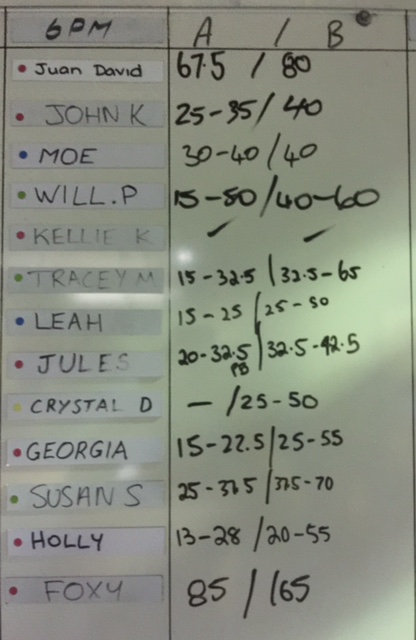 6PM A / B
Juan David 67.5 / 80
JOHN K 25-35 / 40
MOE 30-40 / 40
WILL.P 15-50 / 40-60
KELLIE K ✓ ✓
TRACEY M 15-32.5 / 32.5-65
LEAH 15-25 / 25-50
JULES 20-32.5 / 32.5-42.5
PB
CRYSTAL D — / 25-50
GEORGIA 15-22.5 / 25-55
SUSAN S 25-37.5 / 37.5-70
HOLLY 13-28 / 20-55
FOXY 85 / 165